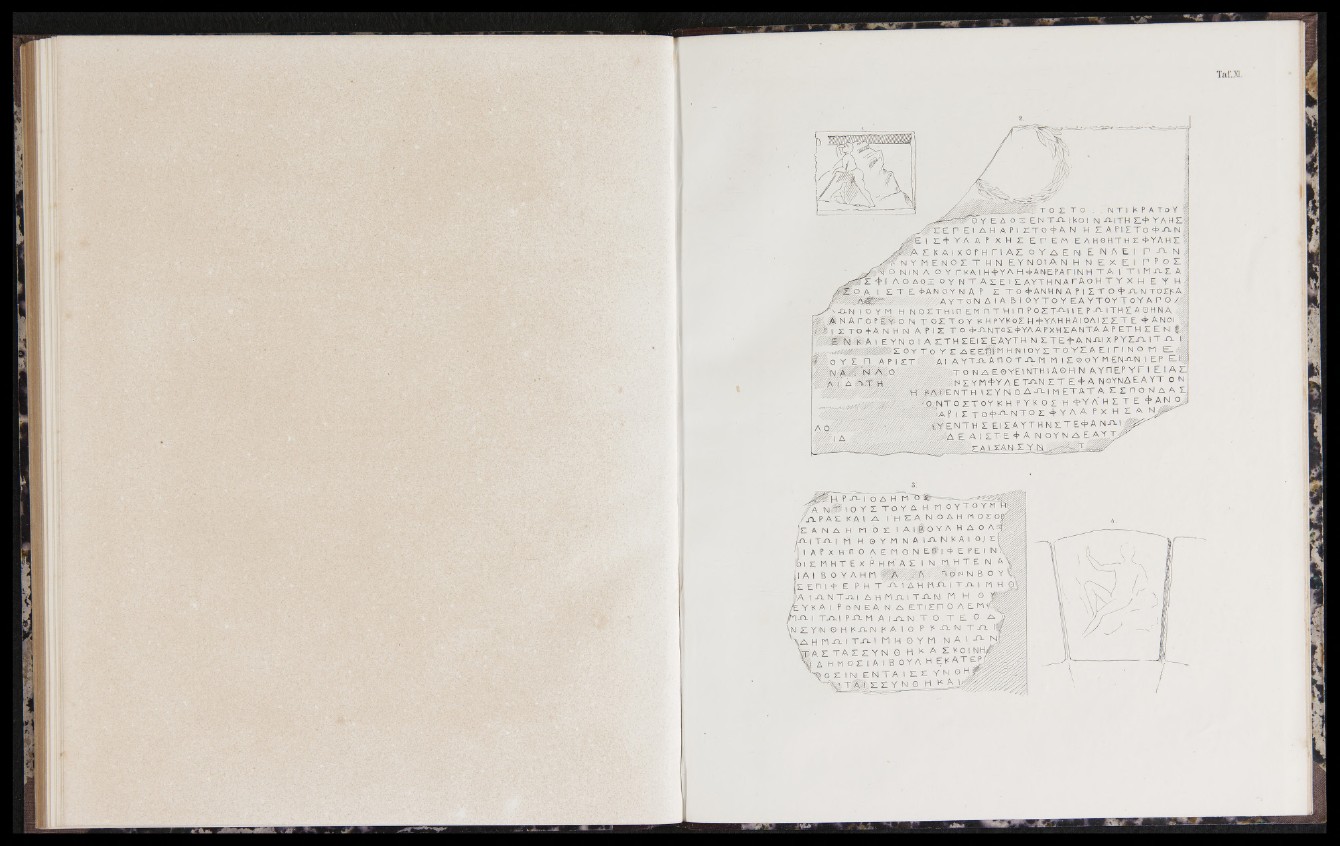 Taf. XI.
1.
2.
ΤΟΣΤΟ ΝΤΙΚΡΑΤΟΥ
ΟΥΕΔΟΞΕΝΤΩΙΚΟΙΝΩΙΤΗΣΦΥΛΗΣ
ΣΕΓΕΙΔΗΑΡΙΣΤΟΦΑΝΗΣΑΡΙΣΤΟΦΩΝ
ΕΙΣΦΥΛΑΡΧΗΣΕΓΕΜΕΛΗΘΗΤΗΣΦΥΛΗΣ
ΑΣΚΑΙΧΟΡΗΓΙΑΣΟΥΔΕΝΕΝΛΕΙΓΩΝ
ΝΥΜΕΝΟΣΤΗΝΕΥΝΟΙΑΝΗΝΕΧΕΙΓΡΟΣ
ΝΟΝΙΝΑΟΥΓΚΑΙΗΦΥΛΗΦΑΝΕΡΑΓΙΝΗΤΑΙΤΙΜΩΣΑ
ΣΦΙΛΟΔΟΞΟΥΝΤΑΣΕΙΣΑΥΤΗΝΑΓΑΘΗΤΥΧΗΕΨΗ
ΣΟΑΙΣΤΕΦΑΝΟΥΝΑΡΣΤΟΦΑΝΗΝΑΡΙΣΤΟΦΩΝΤΟΣΚΑ
ΑΥΤΟΝΔΙΑΒΙΟΥΤΟΥΕΑΥΤΟΥΤΟΥΑΓΟ
ΩΝΙΟΥΜΗΝΟΣΤΗΙΠΕΜΠΤΗΙΠΡΟΣΤΩΙΙΕΡΩΙΤΗΣΑΘΗΝΑ
ΑΝΑΓΟΡΕΥΟΝΤΟΣΤΟΥΚΗΡΥΚΟΣΗΦΥΛΗΗΑΙΟΛΙΣΣΤΕΦΑΝΟΙ
ΙΣΤΟΦΑΝΗΝΑΡΙΣΤΟΦΩΝΤΟΣΦΥΛΑΡΧΗΣΑΝΤΑΑΡΕΤΗΣΕΝ
ΕΝΚΑΙΕΥΝΟΙΑΣΤΗΣΕΙΣΕΑΥΤΗΝΣΤΕΦΑΝΩΙΧΡΥΣΩΙΤΩΙ
ΣΟΥΤΟΥΣΔΕΕΠΙΜΗΝΙΟΥΣΤΟΥΣΑΕΙΓΙΝΟΜΕ
ΟΥΣΠΑΡΙΣΤ ΑΙΑΥΤΩΑΠΟΤΩΜΜΙΣΘΟΥΜΕΝΩΝΙΕΡΕΙ
ΝΑ ΝΛΟ ΤΟΝΔΕΘΥΕΙΝΤΗΙΑΘΗΝΑΥΠΕΡΥΓΙΕΙΑΣ
ΛΙΔΩΤΗ ΝΣΥΜΦΥΛΕΤΩΝΣΤΕΦΑΝΟΥΝΔΕΑΥΤΟΝ
Η ΚΑΙΕΝΤΗΙΣΥΝΟΔΩΙΜΕΤΑΤΑΣΣΠΟΝΔΑΣ
ΟΝΤΟΣΤΟΥΚΗΡΥΚΟΣΗΦΥΛΗΣΤΕΦΑΝΟ
ΑΡΙΣΤΟΦΩΝΤΟΣΦΥΛΑΡΧΗΣΑΝ
ΛΟ ΥΕΝΤΗΣΕΙΣΑΥΤΗΝΣΤΕΦΑΝΩΙ
ΙΔ ΔΕΑΙΣΤΕΦΑΝΟΥΝΔΕΑΥΤ
ΣΑΙΣΑΝΣΥΝ Τ
3.
ΗΡΩΙΟΔΗΜΟΣ
ΑΝ ΙΟΥΣΤΟΥΔΗΜΟΥΤΟΥΜΗ
ΩΡΑΣΚΑΙΔΙΗΣΑΝΟΔΗΜΟΣΟΡ
ΣΑΝΔΗΜΟΣΙΑΙΒΟΥΛΗΔΟΛ
ΩΙΤΩΙΜΗΘΥΜΝΑΙΩΝΚΑΙΟΙΣ
ΙΑΡΧΗΠΟΛΕΜΟΝΕΠΙΦΕΡΕΙΝ
ΟΙΣΜΗΤΕΧΡΗΜΑΣΙΝΜΗΤΕΝΑ
ΙΑΙΒΟΥΛΗΜ Λ Λ ΟΟΝΝΒΟΥ
ΣΕΠΙΦΕΡΗΤΩΙΔΗΜΩΙΤΩΙΜΗΘ
ΑΙΩΝΤΩΙΔΗΜΩΙΤΩΝΜΗΘΥ
ΕΥΚΑΙΡΟΝΕΑΝΔΕΤΙΣΠΟΛΕΜ
ΜΩΙΤΩΙΡΩΜΑΙΩΝΤΟΤΕΟΔ
ΝΣΥΝΘΗΚΩΝΚΑΙΟΡΚΩΝΤΩΙ
ΔΗΜΩΙΤΩΙΜΗΘΥΜΝΑΙΩΝ
ΤΑΣΤΑΣΣΥΝΘΗΚΑΣΚΟΙΝΗ
ΔΗΜΟΣΙΑΙΒΟΥΛΗΕΚΑΤΕΡ
ΟΣΙΝΕΝΤΑΙΣΣΥΝΘΗ
ΤΑΙΣΣΥΝΘΗΚΑΙ
4.